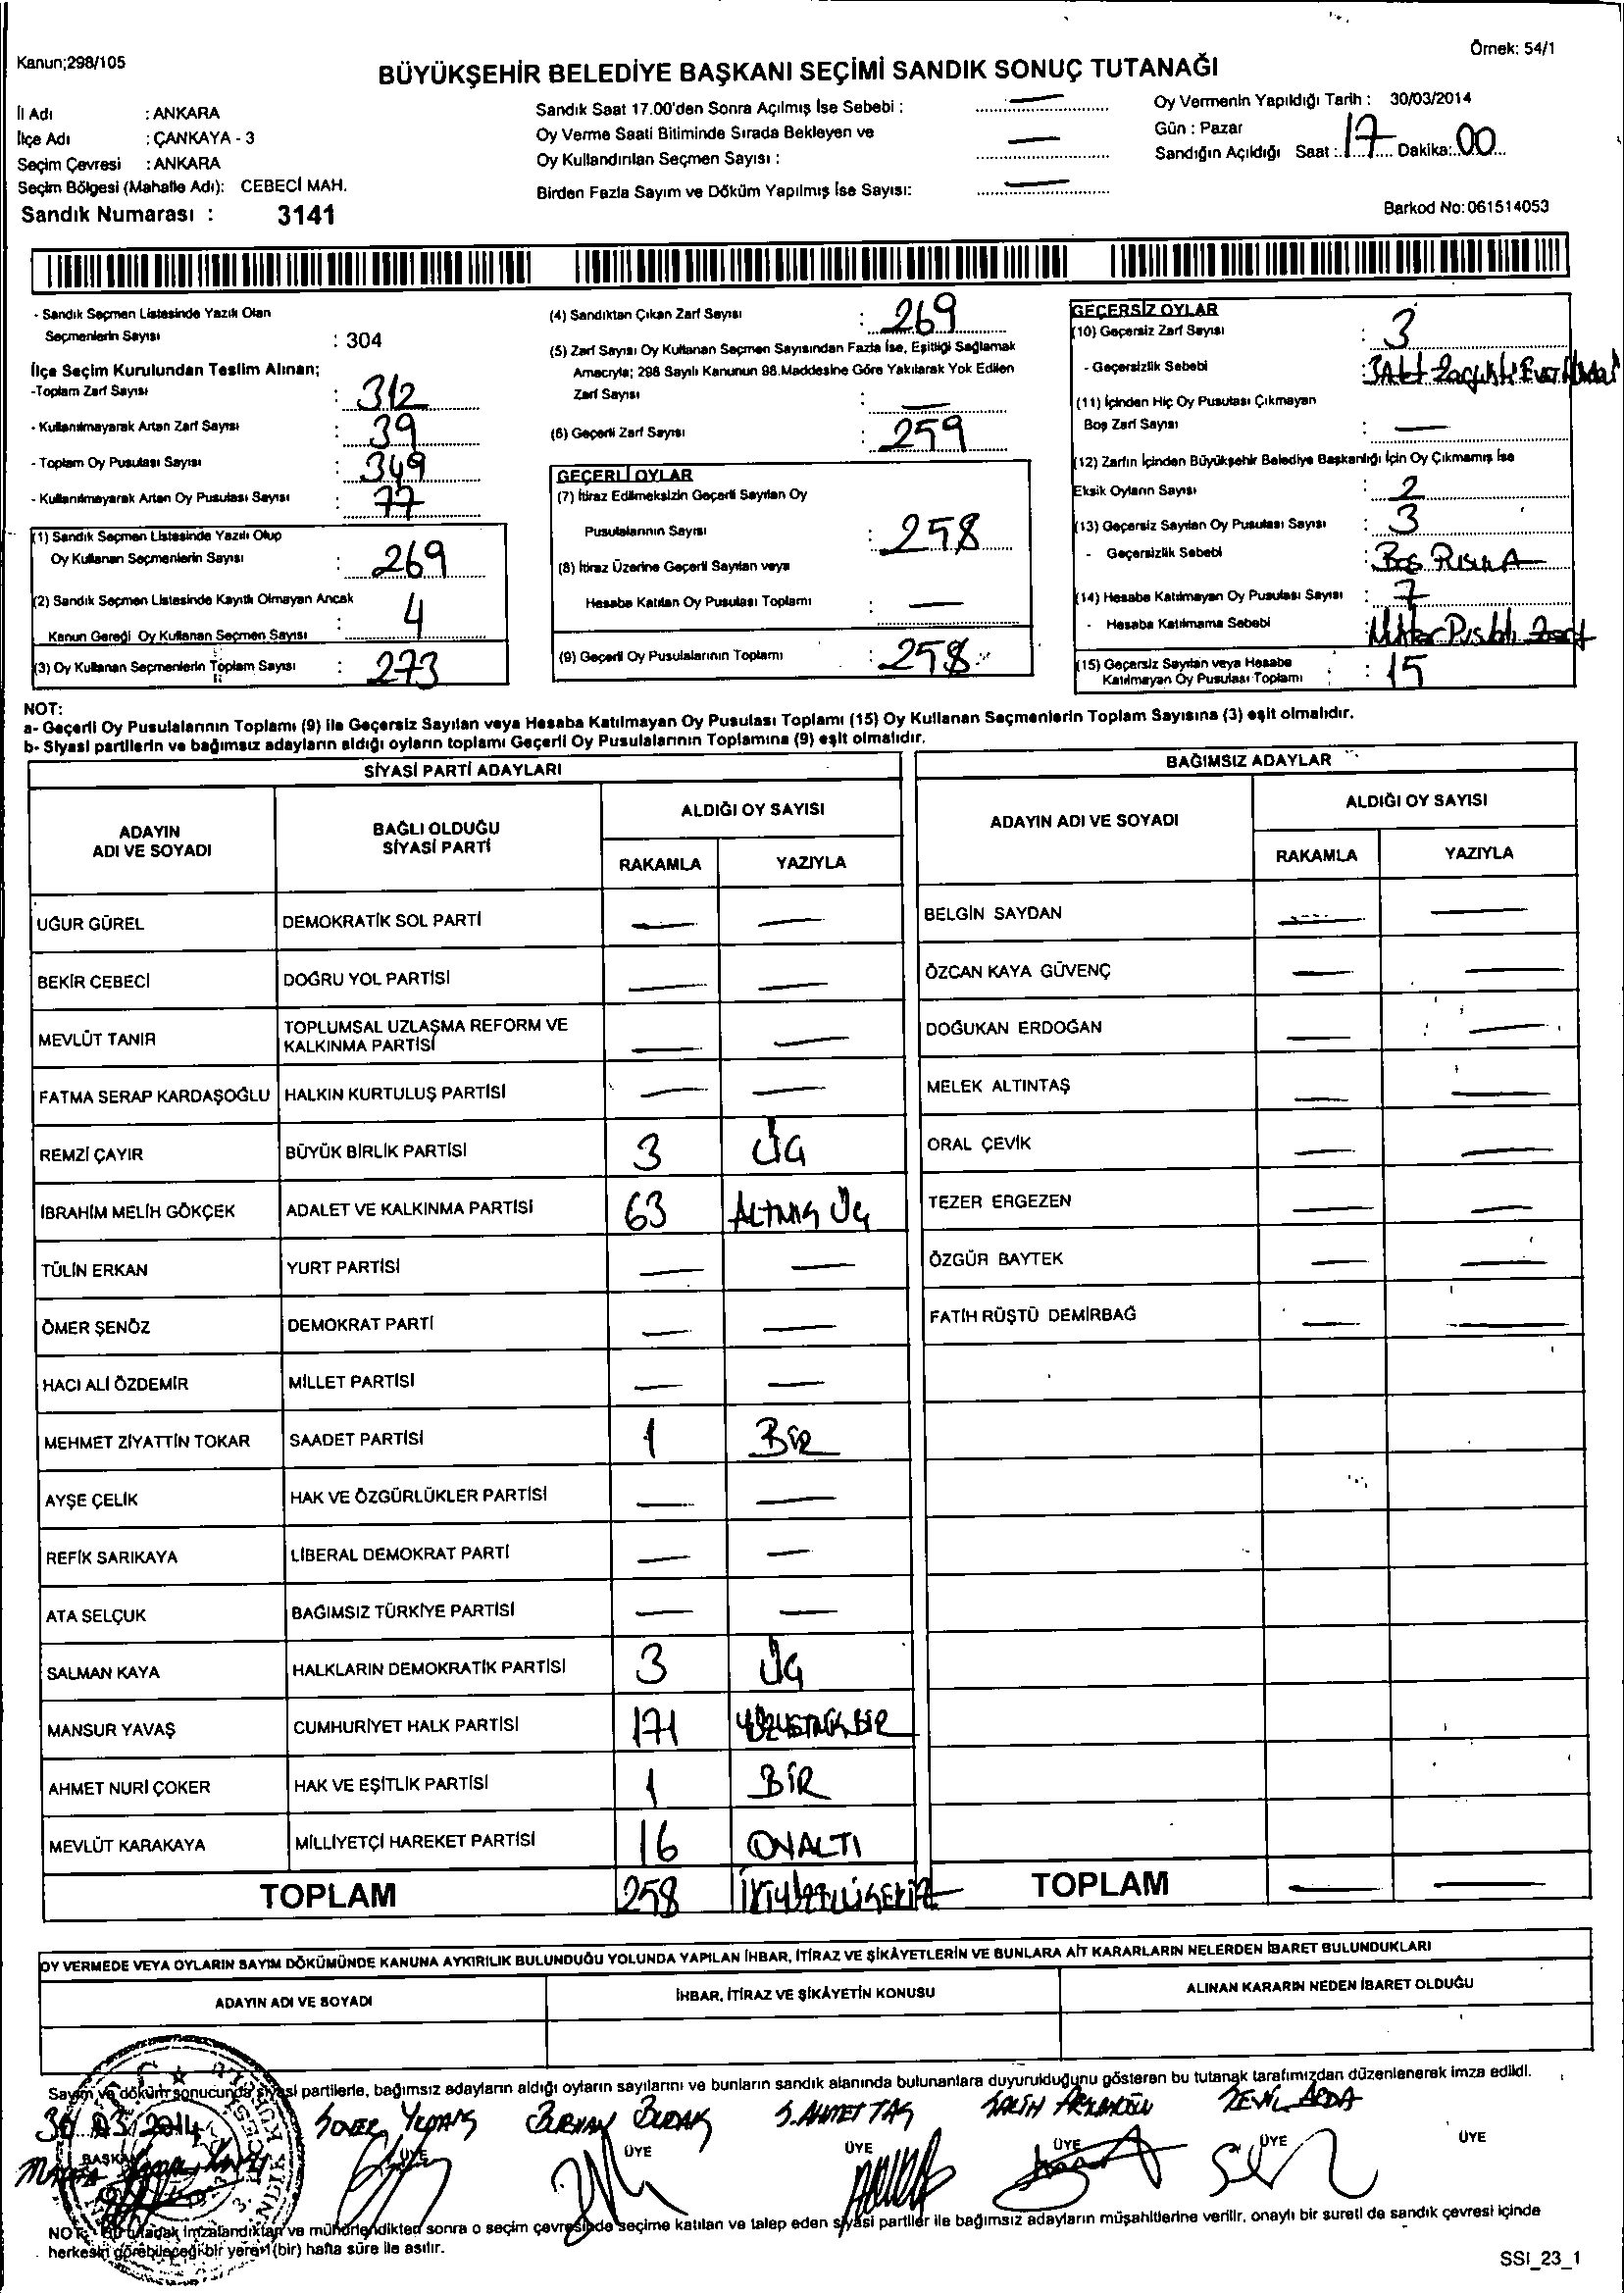 Kanun;298/105
Örnek: 54/1
BÜYÜKŞEHİR BELEDİYE BAŞKANI SEÇİMİ SANDIK SONUÇ TUTANAĞI
İl Adı : ANKARA
İlçe Adı : ÇANKAYA - 3
Seçim Çevresi : ANKARA
Seçim Bölgesi (Mahalle Adı): CEBECİ MAH.
Sandık Numarası : 3141
Sandık Saat 17.00'den Sonra Açılmış İse Sebebi : —
Oy Verme Saati Bitiminde Sırada Bekleyen ve
Oy Kullandırılan Seçmen Sayısı : —
Birden Fazla Sayım ve Döküm Yapılmış İse Sayısı: —
Oy Vermenin Yapıldığı Tarih : 30/03/2014
Gün : Pazar
Sandığın Açıldığı Saat : 17 Dakika: 00
Barkod No:061514053
- Sandık Seçmen Listesinde Yazılı Olan
Seçmenlerin Sayısı : 304
İlçe Seçim Kurulundan Teslim Alınan;
-Toplam Zarf Sayısı : 312
- Kullanılmayarak Artan Zarf Sayısı : 39
- Toplam Oy Pusulası Sayısı : 349
- Kullanılmayarak Artan Oy Pusulası Sayısı : 77
(1) Sandık Seçmen Listesinde Yazılı Olup
Oy Kullanan Seçmenlerin Sayısı : 269
(2) Sandık Seçmen Listesinde Kayıtlı Olmayan Ancak
Kanun Gereği Oy Kullanan Seçmen Sayısı : 4
(3) Oy Kullanan Seçmenlerin Toplam Sayısı : 273
(4) Sandıktan Çıkan Zarf Sayısı : 269
(5) Zarf Sayısı Oy Kullanan Seçmen Sayısından Fazla İse, Eşitliği Sağlamak
Amacıyla; 298 Sayılı Kanunun 98.Maddesine Göre Yakılarak Yok Edilen
Zarf Sayısı : —
(6) Geçerli Zarf Sayısı : 259
GEÇERLİ OYLAR
(7) İtiraz Edilmeksizin Geçerli Sayılan Oy
Pusulalarının Sayısı : 258
(8) İtiraz Üzerine Geçerli Sayılan veya
Hesaba Katılan Oy Pusulası Toplamı : —
(9) Geçerli Oy Pusulalarının Toplamı : 258
GEÇERSİZ OYLAR
(10) Geçersiz Zarf Sayısı : 3
- Geçersizlik Sebebi :
(11) İçinden Hiç Oy Pusulası Çıkmayan
Boş Zarf Sayısı : —
(12) Zarfın İçinden Büyükşehir Belediye Başkanlığı İçin Oy Çıkmamış İse
Eksik Oyların Sayısı : 2
(13) Geçersiz Sayılan Oy Pusulası Sayısı : 3
- Geçersizlik Sebebi : Boş
(14) Hesaba Katılmayan Oy Pusulası Sayısı : 7
- Hesaba Katılmama Sebebi :
(15) Geçersiz Sayılan veya Hesaba
Katılmayan Oy Pusulası Toplamı : 15
NOT:
a- Geçerli Oy Pusulalarının Toplamı (9) ile Geçersiz Sayılan veya Hesaba Katılmayan Oy Pusulası Toplamı (15) Oy Kullanan Seçmenlerin Toplam Sayısına (3) eşit olmalıdır.
b- Siyasi partilerin ve bağımsız adayların aldığı oyların toplamı Geçerli Oy Pusulalarının Toplamına (9) eşit olmalıdır.
SİYASİ PARTİ ADAYLARI
ADAYIN ADI VE SOYADI BAĞLI OLDUĞU SİYASİ PARTİ ALDIĞI OY SAYISI RAKAMLA YAZIYLA
UĞUR GÜREL DEMOKRATİK SOL PARTİ — —
BEKİR CEBECİ DOĞRU YOL PARTİSİ — —
MEVLÜT TANIR TOPLUMSAL UZLAŞMA REFORM VE KALKINMA PARTİSİ — —
FATMA SERAP KARDAŞOĞLU HALKIN KURTULUŞ PARTİSİ — —
REMZİ ÇAYIR BÜYÜK BİRLİK PARTİSİ 3 ÜÇ
İBRAHİM MELİH GÖKÇEK ADALET VE KALKINMA PARTİSİ 63 ALTMIŞ ÜÇ
TÜLİN ERKAN YURT PARTİSİ — —
ÖMER ŞENÖZ DEMOKRAT PARTİ — —
HACI ALİ ÖZDEMİR MİLLET PARTİSİ — —
MEHMET ZİYATTİN TOKAR SAADET PARTİSİ 1 BİR
AYŞE ÇELİK HAK VE ÖZGÜRLÜKLER PARTİSİ — —
REFİK SARIKAYA LİBERAL DEMOKRAT PARTİ — —
ATA SELÇUK BAĞIMSIZ TÜRKİYE PARTİSİ — —
SALMAN KAYA HALKLARIN DEMOKRATİK PARTİSİ 3 ÜÇ
MANSUR YAVAŞ CUMHURİYET HALK PARTİSİ 171 YÜZYETMİŞ BİR
AHMET NURİ ÇOKER HAK VE EŞİTLİK PARTİSİ 1 BİR
MEVLÜT KARAKAYA MİLLİYETÇİ HAREKET PARTİSİ 16 ONALTI
TOPLAM 258 İKİYÜZELLİSEKİZ
BAĞIMSIZ ADAYLAR
ADAYIN ADI VE SOYADI ALDIĞI OY SAYISI RAKAMLA YAZIYLA
BELGİN SAYDAN — —
ÖZCAN KAYA GÜVENÇ — —
DOĞUKAN ERDOĞAN — —
MELEK ALTINTAŞ — —
ORAL ÇEVİK — —
TEZER ERGEZEN — —
ÖZGÜR BAYTEK — —
FATİH RÜŞTÜ DEMİRBAĞ — —
TOPLAM — —
OY VERMEDE VEYA OYLARIN SAYIM DÖKÜMÜNDE KANUNA AYKIRILIK BULUNDUĞU YOLUNDA YAPILAN İHBAR, İTİRAZ VE ŞİKÂYETLERİN VE BUNLARA AİT KARARLARIN NELERDEN İBARET BULUNDUKLARI
ADAYIN ADI VE SOYADI İHBAR, İTİRAZ VE ŞİKÂYETİN KONUSU ALINAN KARARIN NEDEN İBARET OLDUĞU
Sayım ve döküm sonucunda siyasi partilerle, bağımsız adayların aldığı oyların sayılarını ve bunların sandık alanında bulunanlara duyurulduğunu gösteren bu tutanak tarafımızdan düzenlenerek imza edildi.
30.03/2014 BURHAN BUDAK S. AHMET TAŞ
BAŞKAN ÜYE ÜYE ÜYE ÜYE ÜYE ÜYE
NOT: Bu tutanak imzalandıktan ve mühürlendikten sonra o seçim çevresinde seçime katılan ve talep eden siyasi partiler ile bağımsız adayların müşahitlerine verilir, onaylı bir sureti de sandık çevresi içinde
herkesin görebileceği bir yere 1 (bir) hafta süre ile asılır.
SSI_23_1